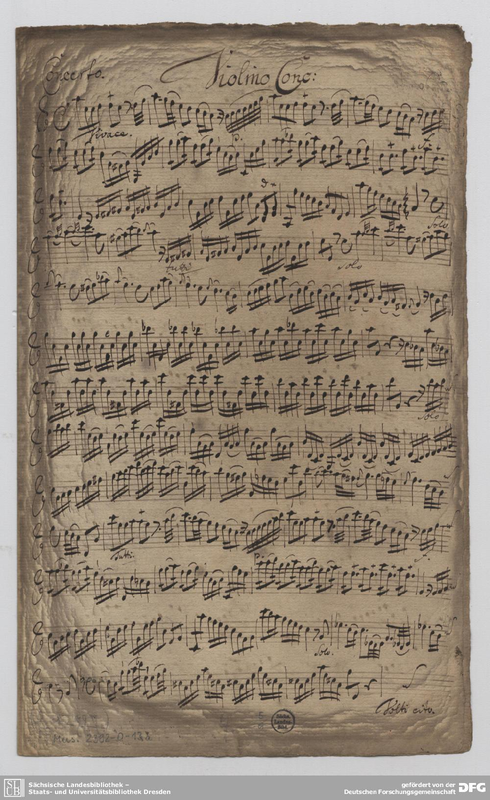 Concerto. Violino Conc:
Vivace.
Solo
tutti
solo
Solo
Tutti
Solo.
Volti cito.
Mus. 2392-O-122
Sächsische Landesbibliothek –
Staats- und Universitätsbibliothek Dresden
gefördert von der
Deutschen Forschungsgemeinschaft DFG